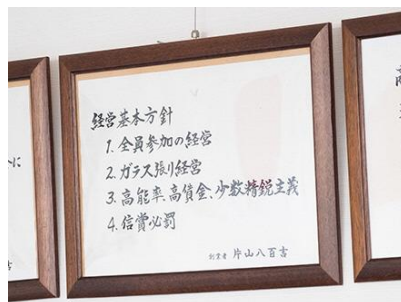 経営基本方針
1. 全員参加の経営
2. ガラス張り経営
3. 高能率、高賃金、少数精鋭主義
4. 信賞必罰
創業者 片山八百吉
に
吉